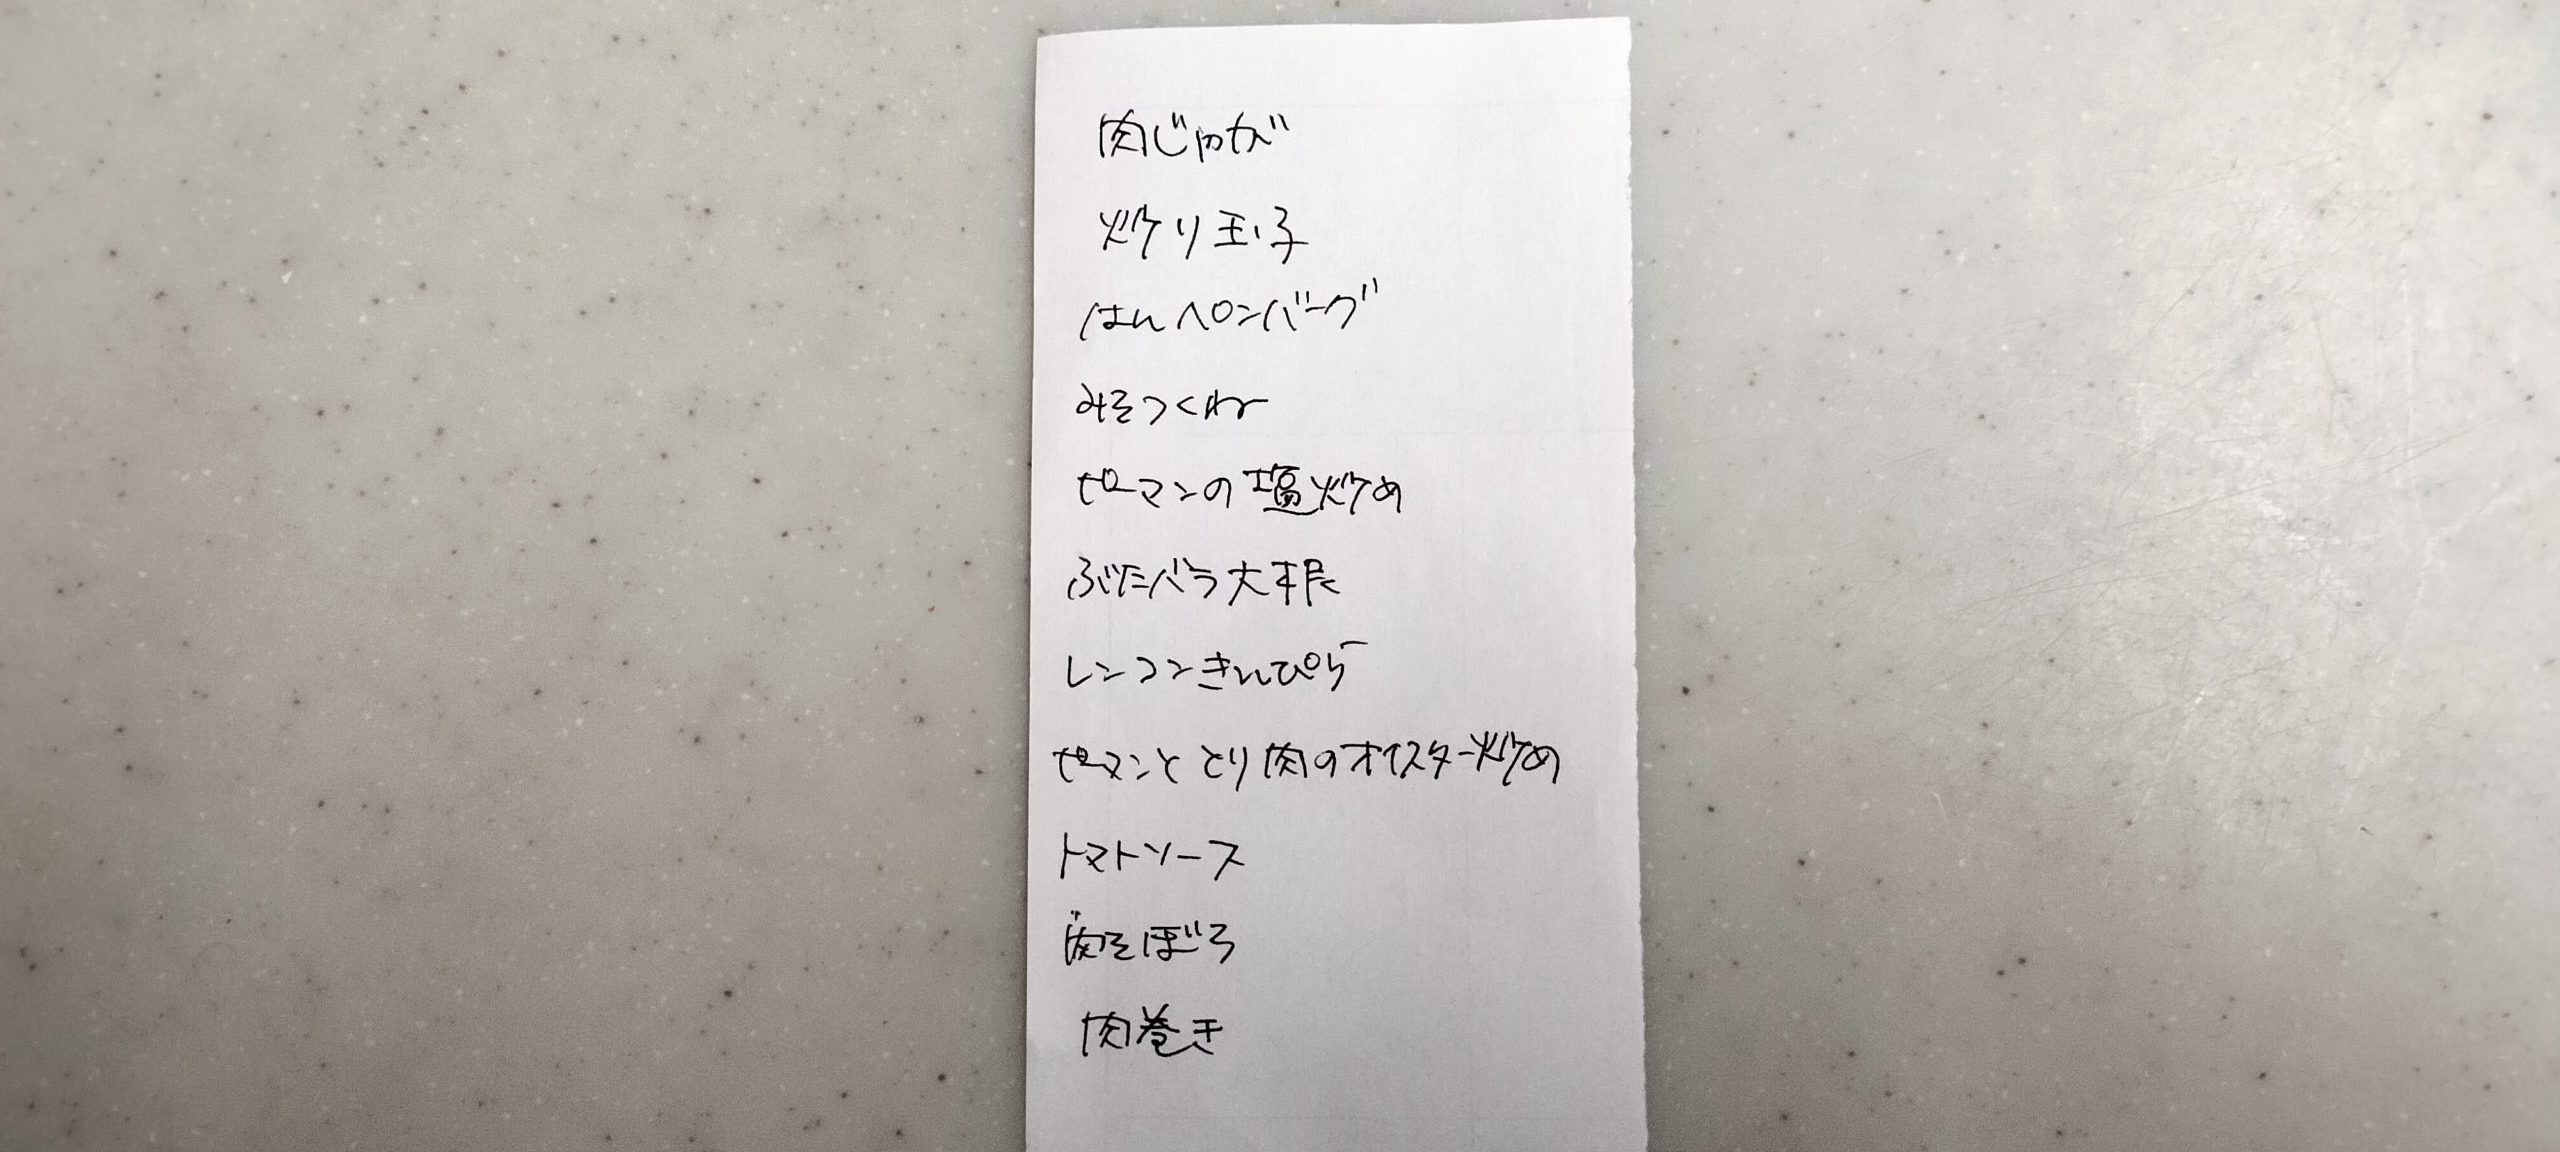 肉じゃが
炒り玉子
はんペンバーグ
みそつくね
ピーマンの塩炒め
ぶたバラ大根
レンコンきんぴら
ピーマンととり肉のオイスター炒め
トマトソース
肉そぼろ
肉巻き